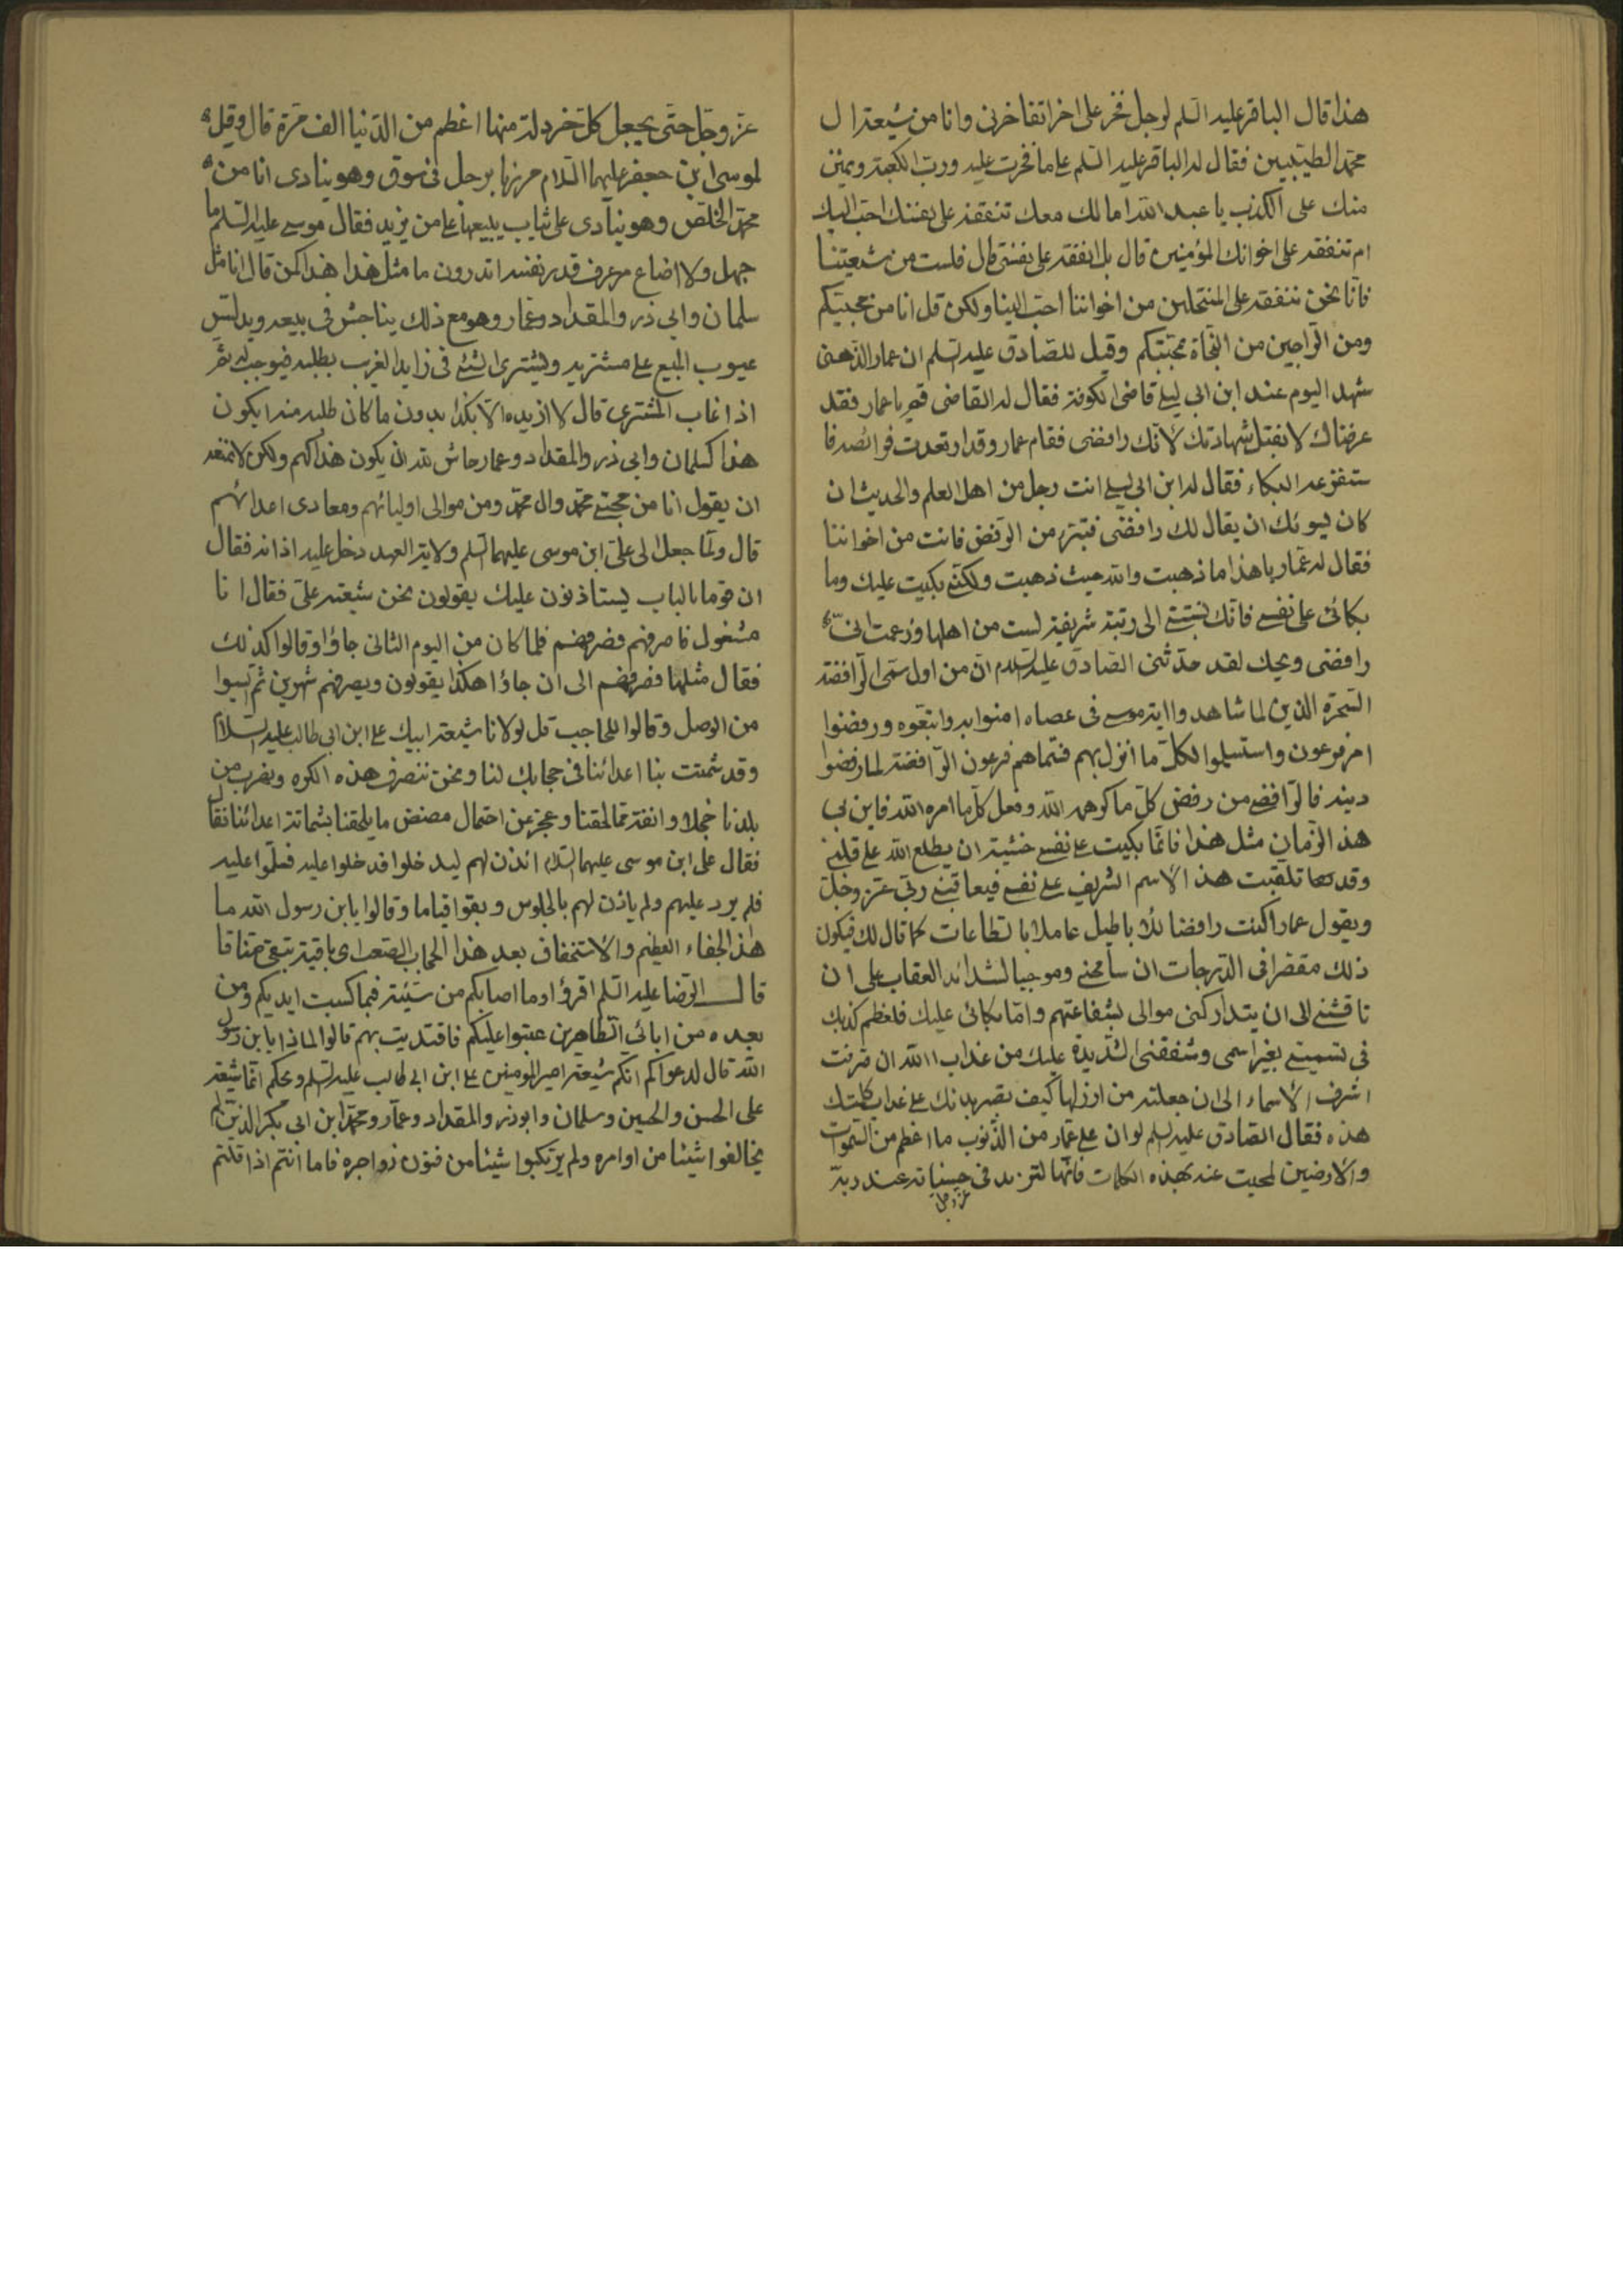 هذا قال الباقر عليه السلم لرجل فخر على اخر اتفاخرنى وانا من شيعة ال
محمد الطيبين فقال له الباقر عليه السلم ما فخرت عليه ورب الكعبة وغبن
منك على الكذب يا عبد الله امالك معك تنفقه على نفسك احب اليك
ام تنفقه على اخوانك المؤمنين قال بل انفقه على نفسى قال فلست من شيعتنا
فانا نحن ننفقه على المنتحلين من اخواننا احب الينا ولكن قل انا من محبيكم
ومن الراجين من النجاة بمحبتكم وقيل للصادق عليه السلم ان عمار الدهنى
شهد اليوم عند ابن ابى ليلى قاضى الكوفة فقال له القاضى قم يا عمار فقد
عرفناك لا نقبل شهادتك لانك رافضى فقام عمار وقد ارتعدت فرائصه فا
ستفرغه البكاء فقال له ابن ابى ليلى انت رجل من اهل العلم والحديث ان
كان يسوئك ان يقال لك رافضى فتبرء من الرفض فانت من اخواننا
فقال له عمار يا هذا ما ذهبت والله حيث ذهبت ولكنى بكيت عليك وما
بكائى على نفسى فانك نسبتنى الى رتبة شريفة لست من اهلها وزعمت انى
رافضى ويحك لقد حدثنى الصادق عليه السلام ان من اول سمى الرافضة
السحرة الذين لما شاهدوا اية موسى فى عصاه امنوا به واتبعوه ورفضوا
امر فرعون واستسلموا لكل ما انزل بهم فسماهم فرعون الرافضة لما رفضوا
دينه فالرافضى من رفض كل ما كرهه الله وفعل كل ما امره الله فاين فى
هذا الزمان مثل هذا فانما بكيت على نفسى خشية ان يطلع الله على قلبى
وقد تلقبت هذا الاسم الشريف على نفسى فيعاتبنى ربى عز وجل
ويقول عمار اكنت رافضا للاباطيل عاملا بالطاعات كما قال لك فيكون
ذلك مقصرا فى الدرجات ان سامحنى وموجبا لشدائد العقاب على ان
ناقشنى الى ان يتداركنى موالى بشفاعتهم واما بكائى عليك فلعظم كذبك
فى تسميتى بغير اسمى وشفقتى الشديدة عليك من عذاب الله ان صرفت
اشرف الاسماء الى ان جعلته من ارزلها كيف يصبر بدنك على عذاب كلمتك
هذه فقال الصادق عليه السلم لو ان على عمار من الذنوب ما اعظم من السموات
والارضين لمحيت عنه بهذه الكلمات فانها لتزيد فى حسناته عند ربه
عز وجل
عز وجل حتى يجعل كل خردلة منها اعظم من الدنيا الف مرة قال وقيل
لموسى ابن جعفر عليهما السلام مررنا برجل فى سوق وهو ينادى انا من
محمد الخلص وهو ينادى على ثياب يبيعها على من يزيد فقال موسى عليه السلم ما
جهل ولا اضاع من عرف قدر نفسه اتدرون ما مثل هذا هذا كمن قال انا مثل
سلمان وابى ذر والمقداد وعمار وهو مع ذلك يناجش فى بيعه ويدلس
عيوب المبيع على مشتريه ويشترى الشئ فى زايد الغريب يطلبه فيوجب له ثم
اذا غاب المشترى قال لا ازيده الا بكذا بدون ما كان طلبه منه ايكون
هذا كسلمان وابى ذر والمقداد وعمار حاش لله ان يكون هذا كهم ولكن لا نمنعه
ان يقول انا من محبى محمد وال محمد ومن موالى اوليائهم ومعادى اعدائهم
قال ولما جعل الى على ابن موسى عليهما السلم ولاية العهد دخل عليه اذانه فقال
ان قوما بالباب يستاذنون عليك يقولون نحن شيعة على فقال انا
مشغول فاصرفهم فصرفهم فلما كان من اليوم الثانى جاؤا وقالوا كذلك
فقال مثلها فصرفهم الى ان جاؤا هكذا يقولون ويصرفهم شهرين ثم ايسوا
من الوصل وقالوا للحاجب قل لولانا شيعة ابيك على ابن ابى طالب عليه السلام
وقد شمتت بنا اعدائنا فى حجابك لنا ونحن ننصرف هذه الكره ونهرب من
بلدنا خجلا وانفة مما لحقنا وعجز عن احتمال مضض ما يلحقنا بشماتة اعدائنا
فقال على ابن موسى عليهما السلام ائذن لهم ليدخلوا فدخلوا عليه فسلموا عليه
فلم يرد عليهم ولم ياذن لهم بالجلوس وبقوا قياما وقالوا يابن رسول الله ما
هذا الجفاء العظيم والاستخفاف بعد هذا الحجاب الصعب اى باقية تبقى منا
قال الرضا عليه السلم اقرؤا وما اصابكم من سيئة فبما كسبت ايديكم ومن
بعده من ابائى الطاهرين عتبوا عليكم فاقتديت بهم قالوا لماذا يابن رسول
الله قال لدعواكم انكم شيعة امير المومنين على ابن ابى طالب عليه السلم ويحكم انما شيعة
على الحسن والحسين وسلمان وابوذر والمقداد وعمار ومحمد ابن ابى بكر الذين لم
يخالفوا شيئا من اوامره ولم يرتكبوا شيئا من فنون زواجره فاما انتم اذا قلتم